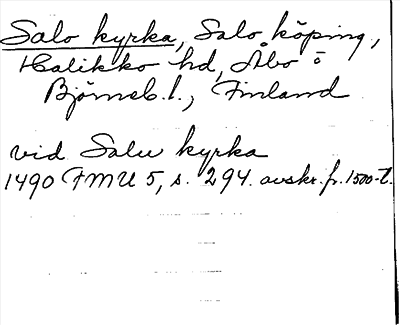 Salo kyrka, Salo köping,
Halikko hd, Åbo o
Björneb. l., Finland
vid Salu kyrka
1490 FMU 5, s. 294. avskr. fr. 1500-t.